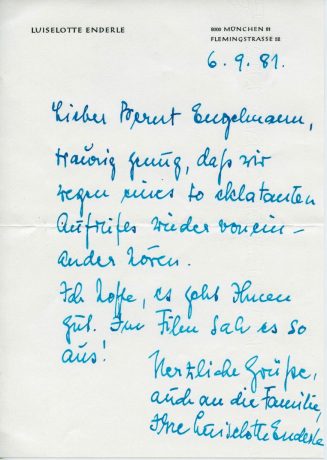 LUISELOTTE ENDERLE
8000 MÜNCHEN 81
FLEMINGSTRASSE 52
6.9.81.
Lieber Bernt Engelmann,
traurig genug, daß wir
wegen eines so eklatanten
wieder vonein-
ander hören.
Ich hoffe, es geht Ihnen
gut. Im Film sah es so
aus!
Herzliche Grüße,
auch an die Familie,
Ihre Luiselotte Enderle